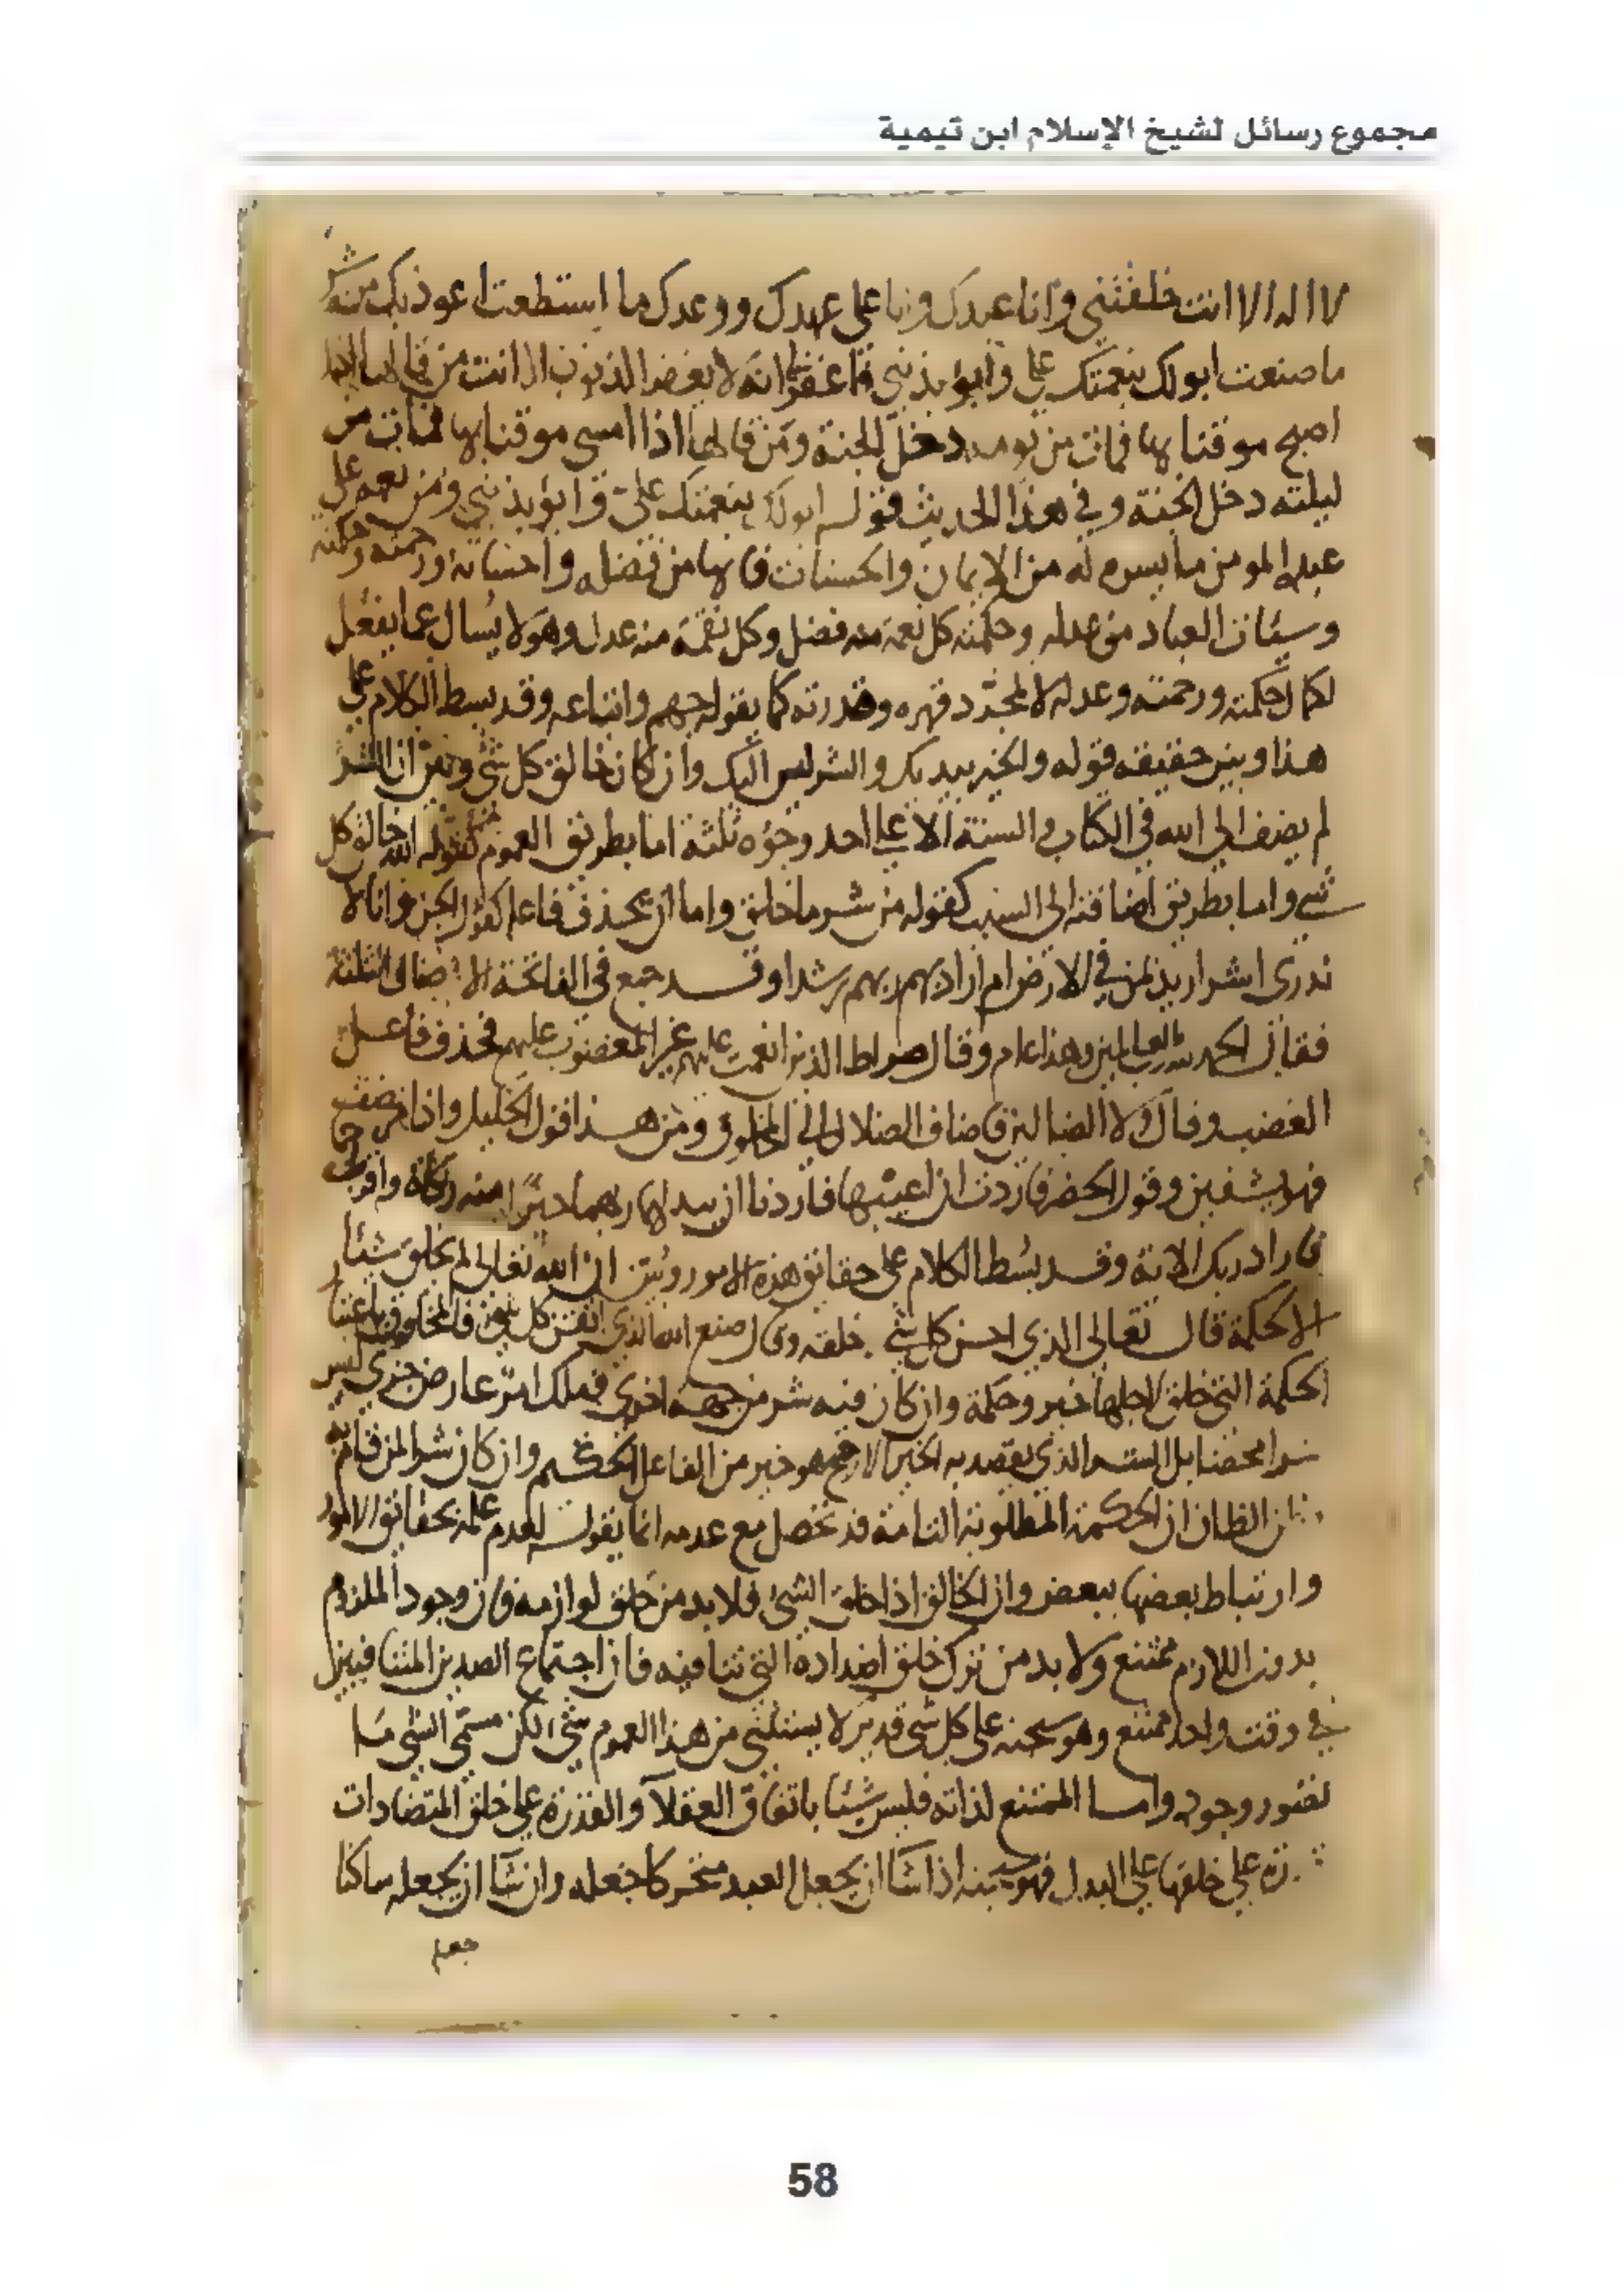 مجموع رسائل لشيخ الإسلام ابن تيمية
لا اله الا انت خلقتني وانا عبدك وانا على عهدك ووعدك ما استطعت اعوذ بك من شر
ما صنعت ابو لك بنعمتك علي وابؤ بذنبي فاغفر لي انه لا يغفر الذنوب الا انت من قالها اذا
اصبح موقنا بها فمات من يومه دخل الجنة ومن قالها اذا امسى موقنا بها فمات من
ليلته دخل الجنة وفي هذا الحديث قوله ابو لك بنعمتك علي وابؤ بذنبي ومن نعمه على
عبده المومن ما يسره له من الايمان والحسنات فانها من فضله واحسانه ورحمته وحكمته
وسيئات العباد من عدله وحكمته كل نعمة منه فضل وكل نقمة منه عدل وهو لا يسال عما يفعل
لكمال حكمته ورحمته وعدله لا لمجرد قهره وقدرته كما يقوله جهم واتباعه وقد بسط الكلام على
هذا وبين حقيقة قوله والخير بيديك والشر ليس اليك وان كان خالق كل شي وبين ان الشر
لم يضف الى الله في الكتاب والسنة الا على احد وجوه ثلثة اما بطريق العموم كقوله الله خالق كل
شي واما بطريق اضافته الى السبب كقوله من شر ما خلق واما ان يحذف فاعله كقول الجن وانا لا
ندري اشر اريد بمن في الارض ام اراد بهم ربهم رشدا وقد جمع في الفاتحة الاصناف الثلثة
فقال الحمد لله رب العالمين وهذا عام وقال صراط الذين انعمت عليهم غير المغضوب عليهم فحذف فاعل
الغضب وقال ولا الضالين فاضاف الضلال الى المخلوق ومن هذا قول الخليل واذا مرضت
فهو يشفين وقول الخضر فاردت ان اعيبها فاردنا ان يبدلهما ربهما خيرا منه زكاة واقرب رحما
فاراد ربك الاية وقد بسط الكلام على حقائق هذه الامور وبين ان الله تعالى لم يخلق شيئا
الا لحكمة قال تعالى الذي احسن كل شي خلقه وقال صنع الله الذي اتقن كل شي فالمخلوق باعتبار
الحكمة التي خلق لاجلها خير وحكمة وان كان فيه شر من جهة اخرى فذلك امر عارض جزي ليس
شرا محضا بل الشر الذي يقصد به الخير الارجح هو خير من الفاعل الحكيم وان كان شرا لمن قام به
الظان ان الحكمة المطلوبة التامة قد تحصل مع عدمه انما يقوله لعدم علمه بحقائق الامور
وارتباط بعضها ببعض وان الخالق اذا خلق الشي فلا بد من خلق لوازمه فان وجود الملزوم
بدون اللازم ممتنع ولا بد من ترك خلق اضداده التي تنافيه فان اجتماع الضدين المتنافيين
في وقت واحد ممتنع وهو سبحنه على كل شي قدير لا يستثنى من هذا العموم شي لكن مسمى الشي ما
تصور وجوده واما الممتنع لذاته فليس شيئا باتفاق العقلا والقدرة على خلق المتضادات
على خلقها على البدل فهو سبحنه اذا شا ان يجعل العبد متحركا جعله وان شا ان يجعله ساكنا
جعله
58